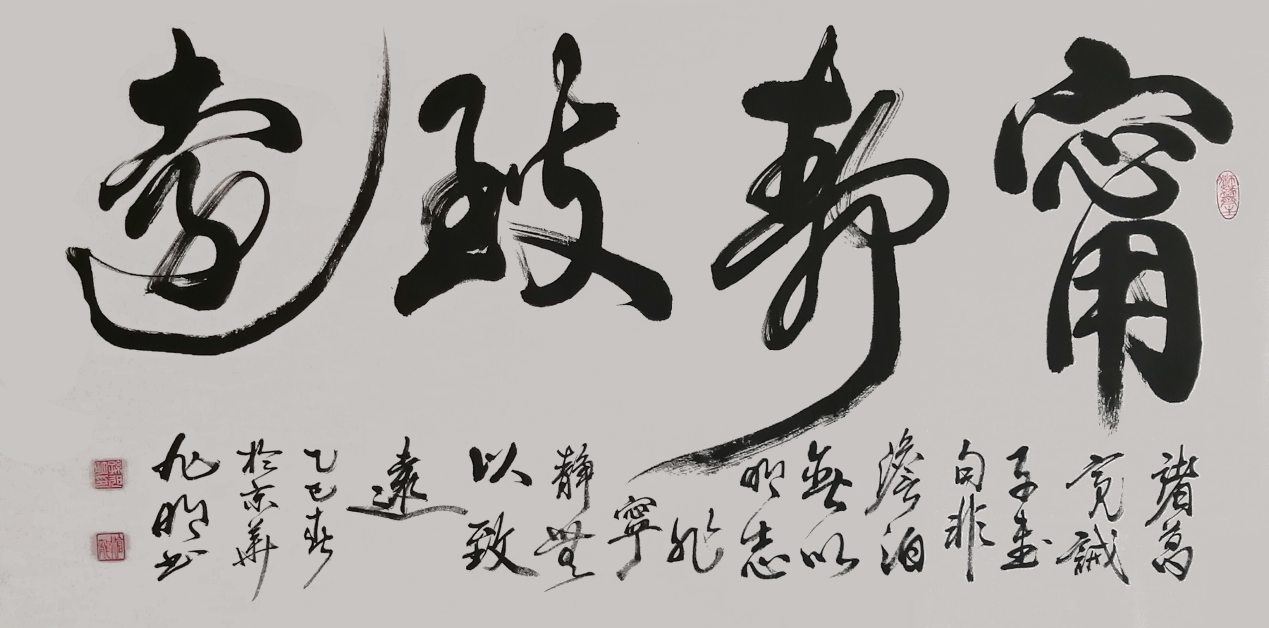 甯静致遠
諸葛
亮誡
子書
句非
澹泊
無以
明志
非
寧
静無
以致
遠
乙巳春
於京華
旭明书